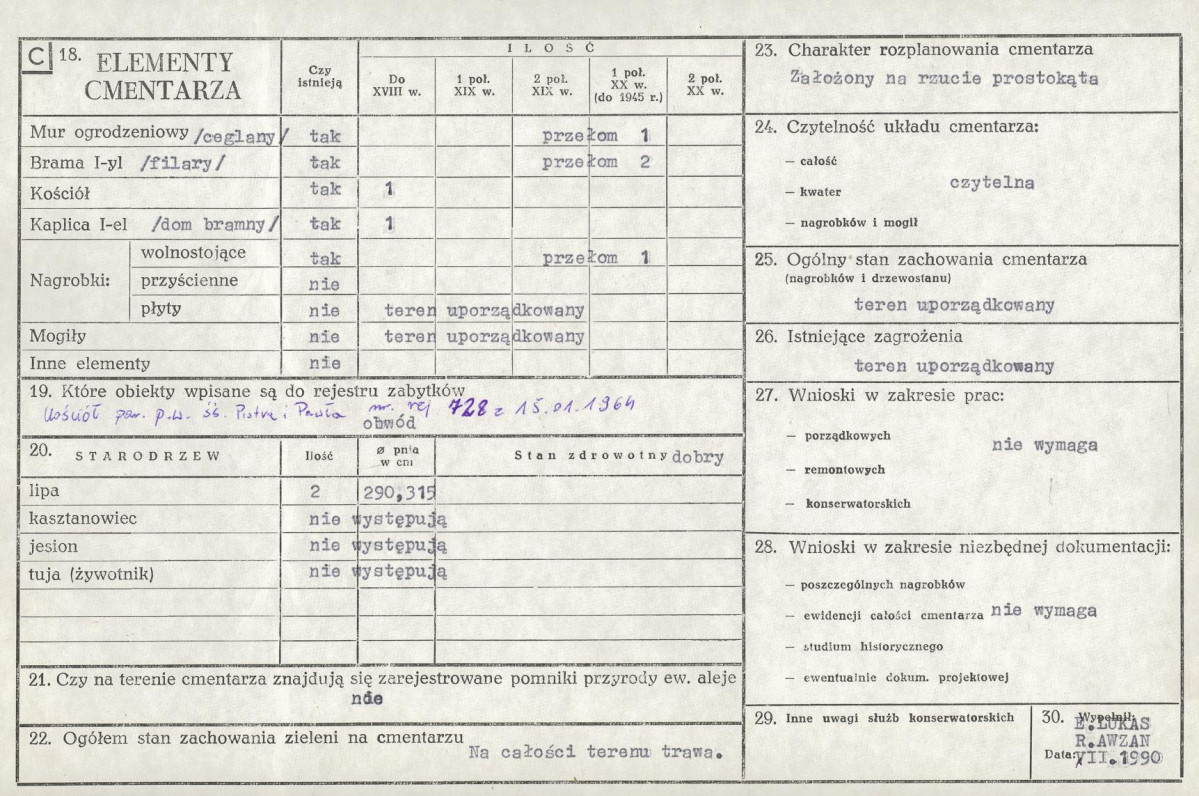 C 18. ELEMENTY CMENTARZA
Czy istnieją
I L O S Ć
Do XVIII w.
1 poł. XIX w.
2 poł. XIX w.
1 poł. XX w. (do 1945 r.)
2 poł. XX w.
Mur ogrodzeniowy /ceglany/ tak przełom 1
Brama I-yl /filary/ tak przełom 2
Kościół tak 1
Kaplica I-el /dom bramny/ tak 1
Nagrobki:
wolnostojące tak przełom 1
przyścienne nie
płyty nie teren uporządkowany
Mogiły nie teren uporządkowany
Inne elementy nie
19. Które obiekty wpisane są do rejestru zabytków
Kościół par. p.w. śś. Piotra i Pawła nr. rej 728 z 15.01.1964
obwód
20. STARODRZEW Ilość ø pnia w cm Stan zdrowotny dobry
lipa 2 290,315
kasztanowiec nie występują
jesion nie występują
tuja (żywotnik) nie występują
21. Czy na terenie cmentarza znajdują się zarejestrowane pomniki przyrody ew. aleje
nie
22. Ogółem stan zachowania zieleni na cmentarzu
Na całości terenu trawa.
23. Charakter rozplanowania cmentarza
Założony na rzucie prostokąta
24. Czytelność układu cmentarza:
— całość
czytelna
— kwater
— nagrobków i mogił
25. Ogólny stan zachowania cmentarza
(nagrobków i drzewostanu)
teren uporządkowany
26. Istniejące zagrożenia
teren uporządkowany
27. Wnioski w zakresie prac:
— porządkowych
nie wymaga
— remontowych
— konserwatorskich
28. Wnioski w zakresie niezbędnej dokumentacji:
— poszczególnych nagrobków
— ewidencji całości cmentarza nie wymaga
— studium historycznego
— ewentualnie dokum. projektowej
29. Inne uwagi służb konserwatorskich
30. Wypełnił:
E.LUKAS
R.AWZAN
Data: VII.1990